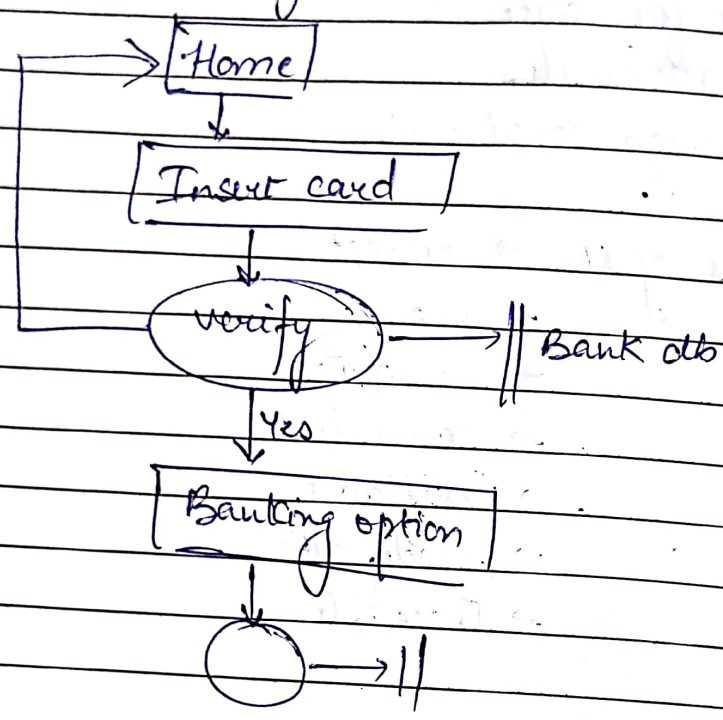 Home
Insert card
verify
Bank db
Yes
Banking option